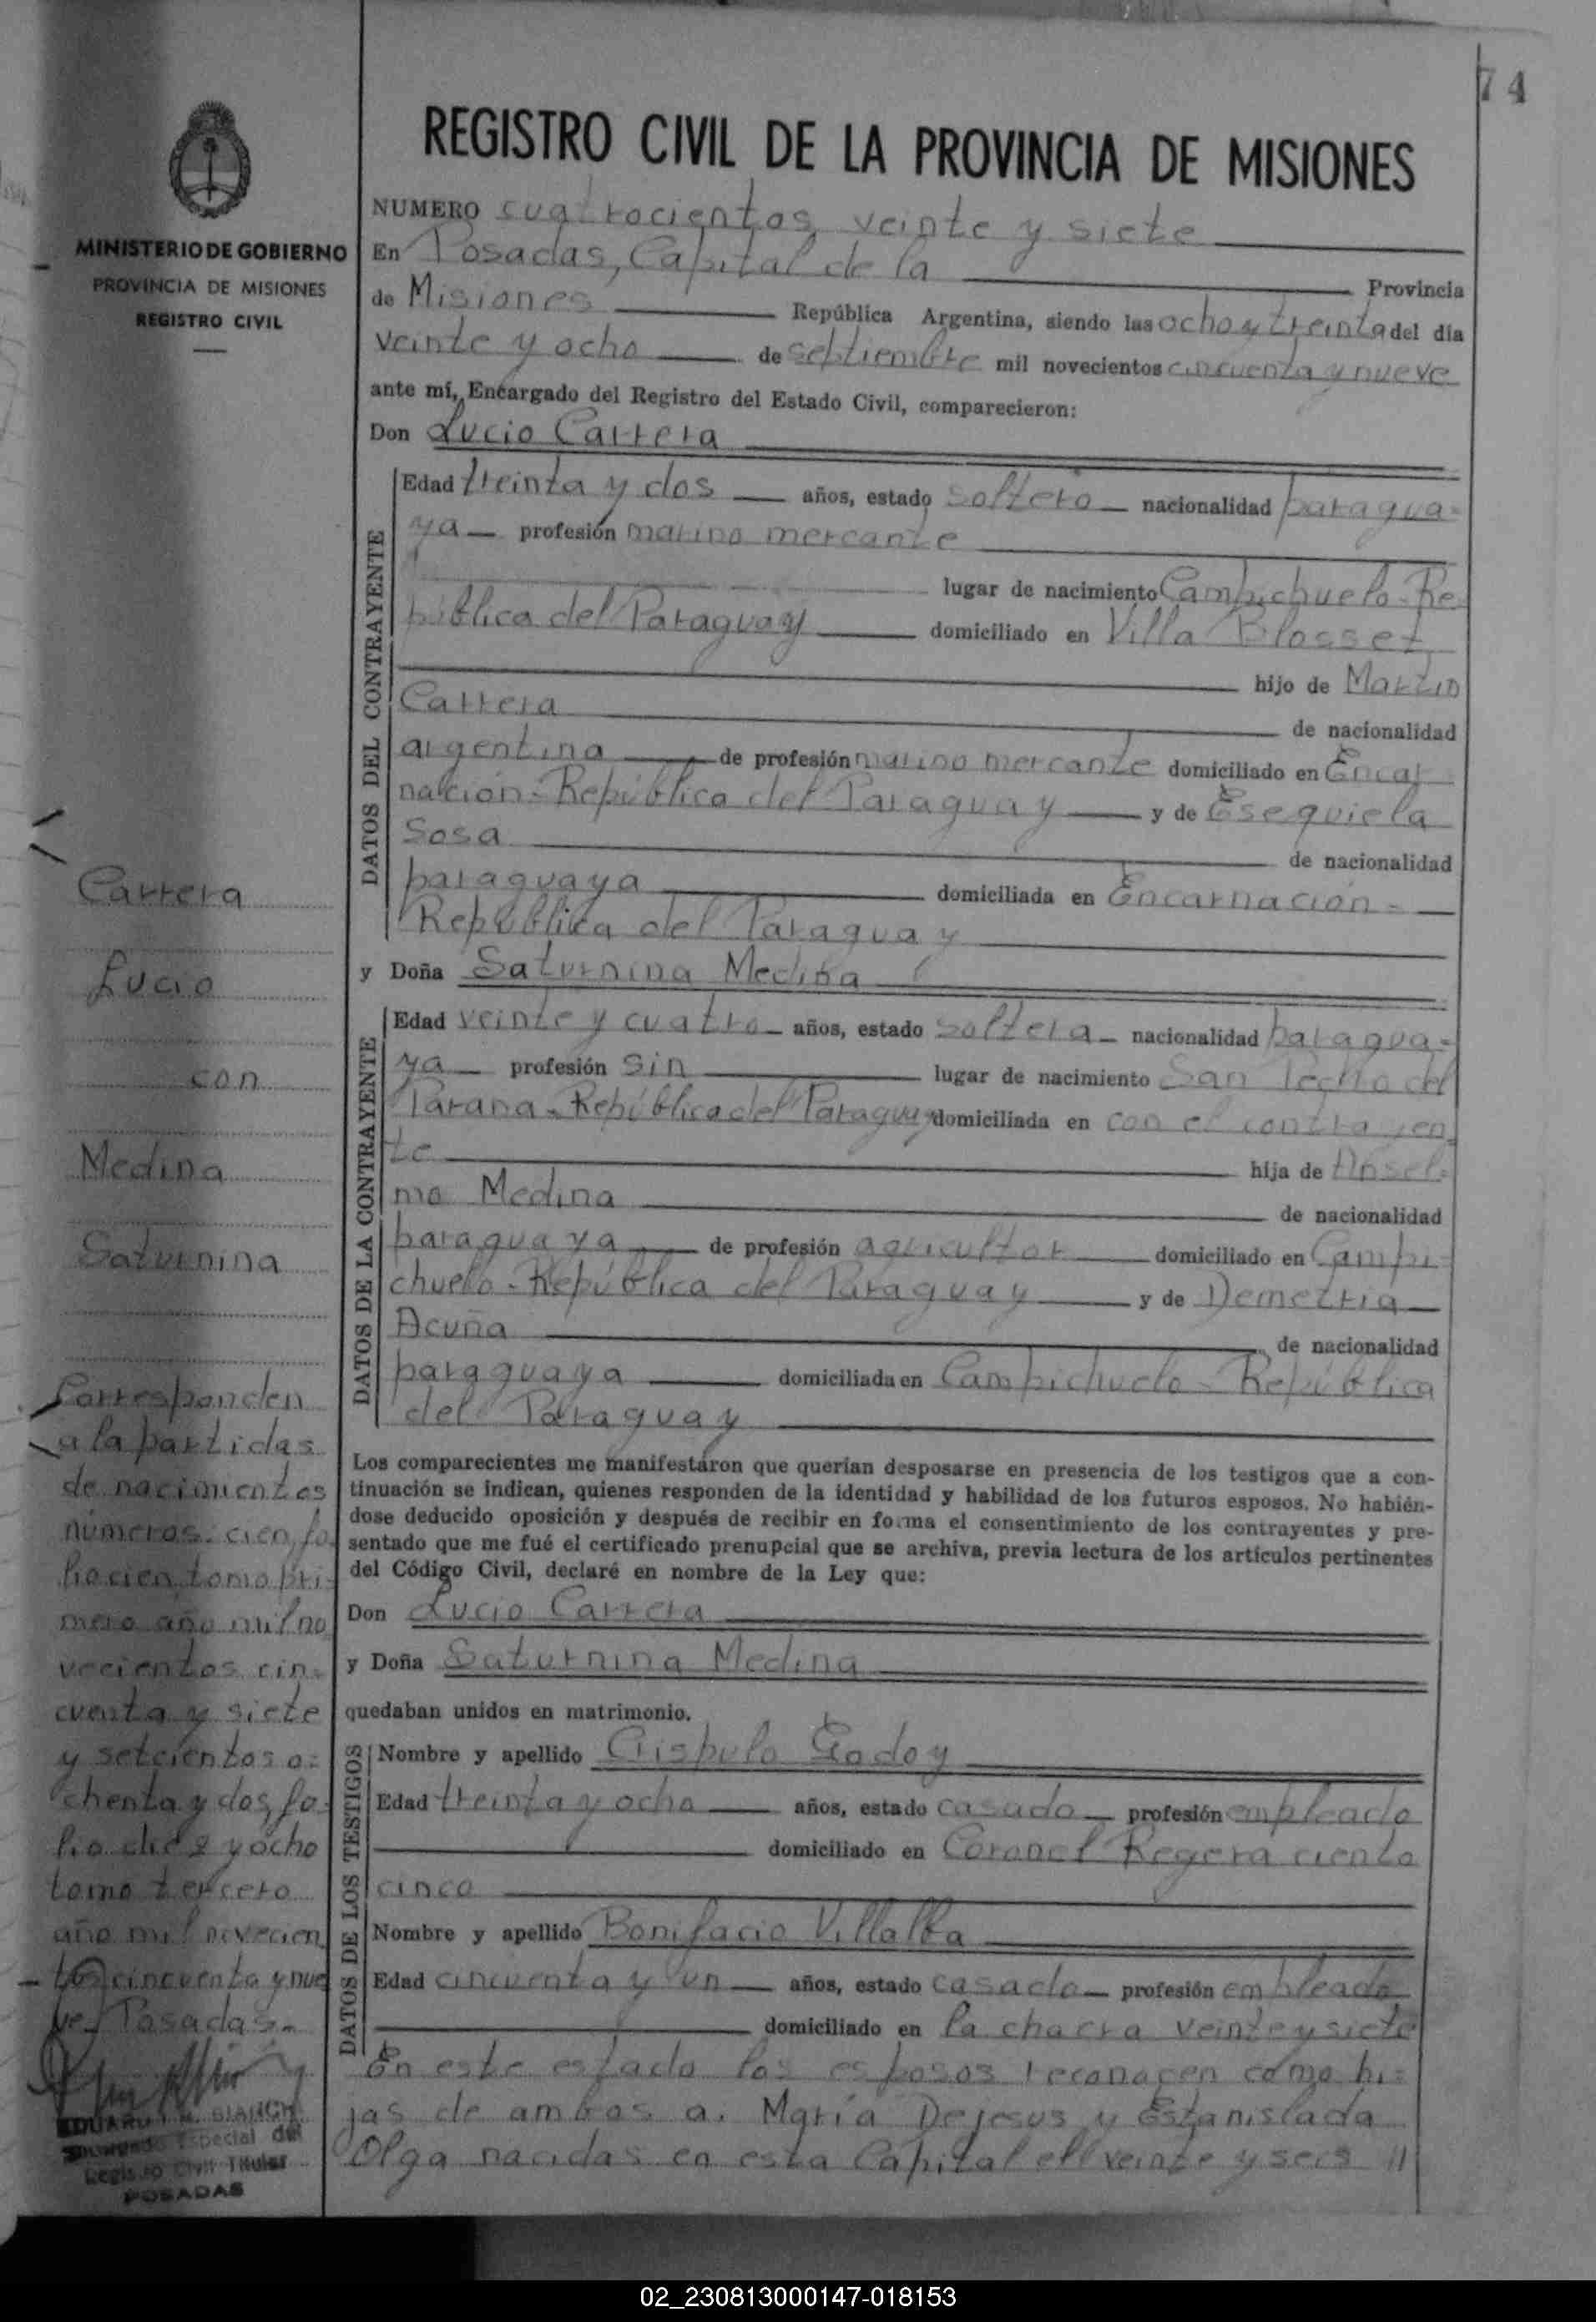 74
REGISTRO CIVIL DE LA PROVINCIA DE MISIONES
MINISTERIO DE GOBIERNO
PROVINCIA DE MISIONES
REGISTRO CIVIL
NUMERO cuatrocientos veinte y siete
En Posadas, Capital de la Provincia
de Misiones República Argentina, siendo las ocho y treinta del día
veinte y ocho de septiembre mil novecientos cincuenta y nueve
ante mí, Encargado del Registro del Estado Civil, comparecieron:
Don Lucio Carrera
DATOS DEL CONTRAYENTE
Edad treinta y dos años, estado soltero nacionalidad paragua-
ya profesión marino mercante
lugar de nacimiento Campichuelo-Re-
pública del Paraguay domiciliado en Villa Blosset
hijo de Martín
Carrera de nacionalidad
argentina de profesión marino mercante domiciliado en Encar
nación-República del Paraguay y de Esequiela
Sosa de nacionalidad
paraguaya domiciliada en Encarnación-
República del Paraguay
y Doña Saturnina Medina
DATOS DE LA CONTRAYENTE
Edad veinte y cuatro años, estado soltera nacionalidad paragua-
ya profesión sin lugar de nacimiento San del
Paraná-República del Paraguay domiciliada en con el contrayen
te hija de Ansel-
mo Medina de nacionalidad
paraguaya de profesión agricultor domiciliado en Campi-
chuelo-República del Paraguay y de Demetria
Acuña de nacionalidad
paraguaya domiciliada en Campichuelo-República
del Paraguay
Los comparecientes me manifestaron que querían desposarse en presencia de los testigos que a con-
tinuación se indican, quienes responden de la identidad y habilidad de los futuros esposos. No habién-
dose deducido oposición y después de recibir en forma el consentimiento de los contrayentes y pre-
sentado que me fué el certificado prenupcial que se archiva, previa lectura de los artículos pertinentes
del Código Civil, declaré en nombre de la Ley que:
Don Lucio Carrera
y Doña Saturnina Medina
quedaban unidos en matrimonio.
DATOS DE LOS TESTIGOS
Nombre y apellido Crispulo Godoy
Edad treinta y ocho años, estado casado profesión empleado
domiciliado en Coronel Regera ciento
cinco
Nombre y apellido Bonifacio Villalba
Edad cincuenta y un años, estado casado profesión empleado
domiciliado en la chacra veinte y siete
En este estado los esposos reconocen como hi-
jas de ambos a. María Dejesus y Estanislada
Olga nacidas en esta Capital el veinte y seis //
Carrera
Lucio
con
Medina
Saturnina
Corresponden
a la partidas
de nacimientos
números: cien, fo-
lio cien tomo pri-
mero año mil no
vecientos cin-
cuenta y siete
y setcientos o-
chenta y dos, fo-
lio diez y ocho
tomo tercero
año mil novecien
tos cincuenta y nue
ve, Posadas.-
EDUARDO M. BIANCHI
Especial del
Registro Civil Titular
POSADAS
02_230813000147-018153